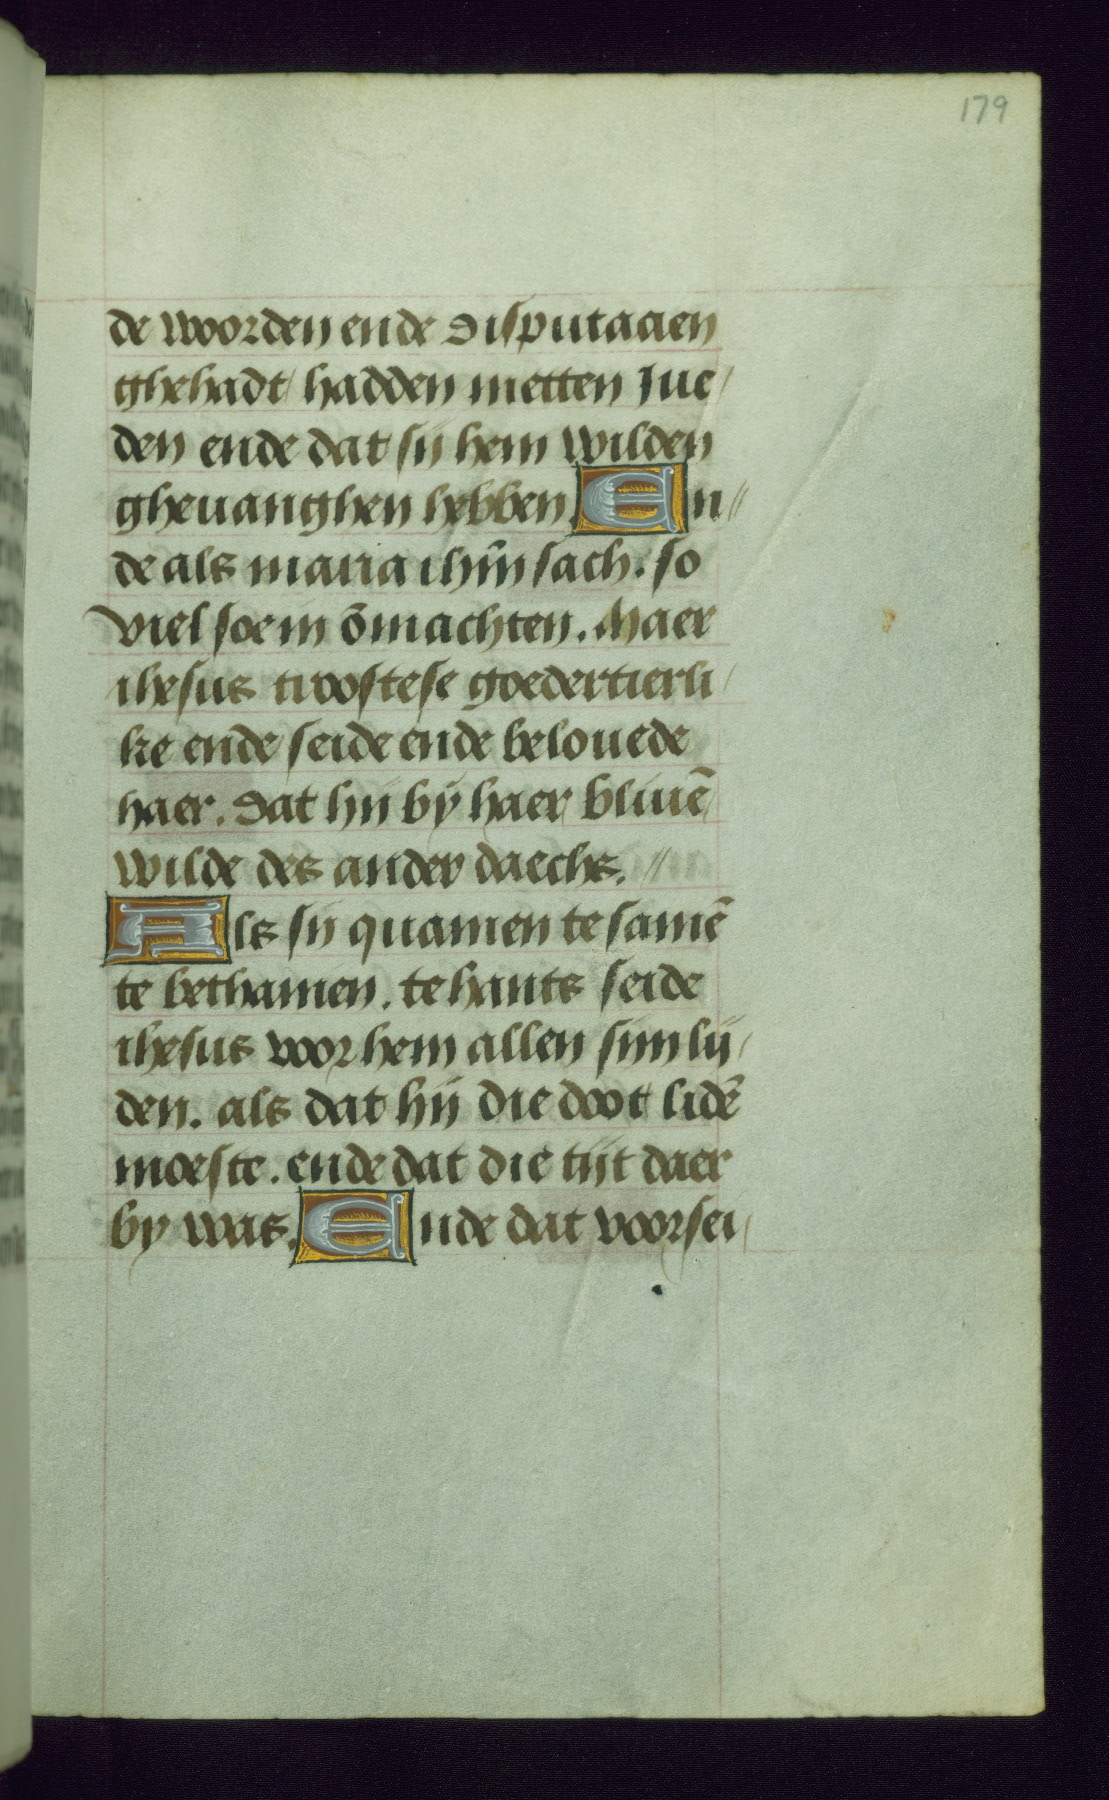 179
de woorden ende disputacien
ghehadt hadden metten Jue/
den ende dat sij hem wilden
gheuanghen hebben En//
de als maria ihm̄ sach. so
viel soe in ōmachten. Maer
ihesus troostese goedertierli/
ke ende seide ende belouede
haer. dat hij bÿ haer bliuē
wilde des ander daechs. //
Als sij quamen te samē
te bethanien. te hants seide
ihesus voor hem allen sijn lij/
den. als dat hij die doot lidē
moeste. ende dat die tijt daer
by was. Ende dat voorsei/